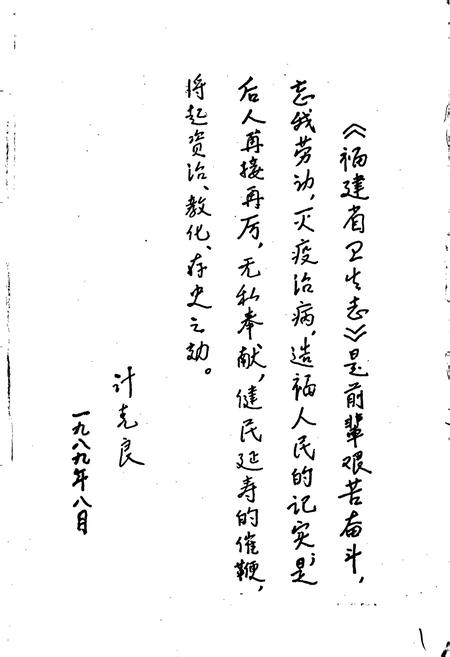 《福建省卫生志》是前辈艰苦奋斗，
忘我劳动，灭疫治病，造福人民的记实；是
后人再接再厉，无私奉献，健民延寿的催鞭，
将起资治、教化、存史之効。
计克良
一九八九年八月